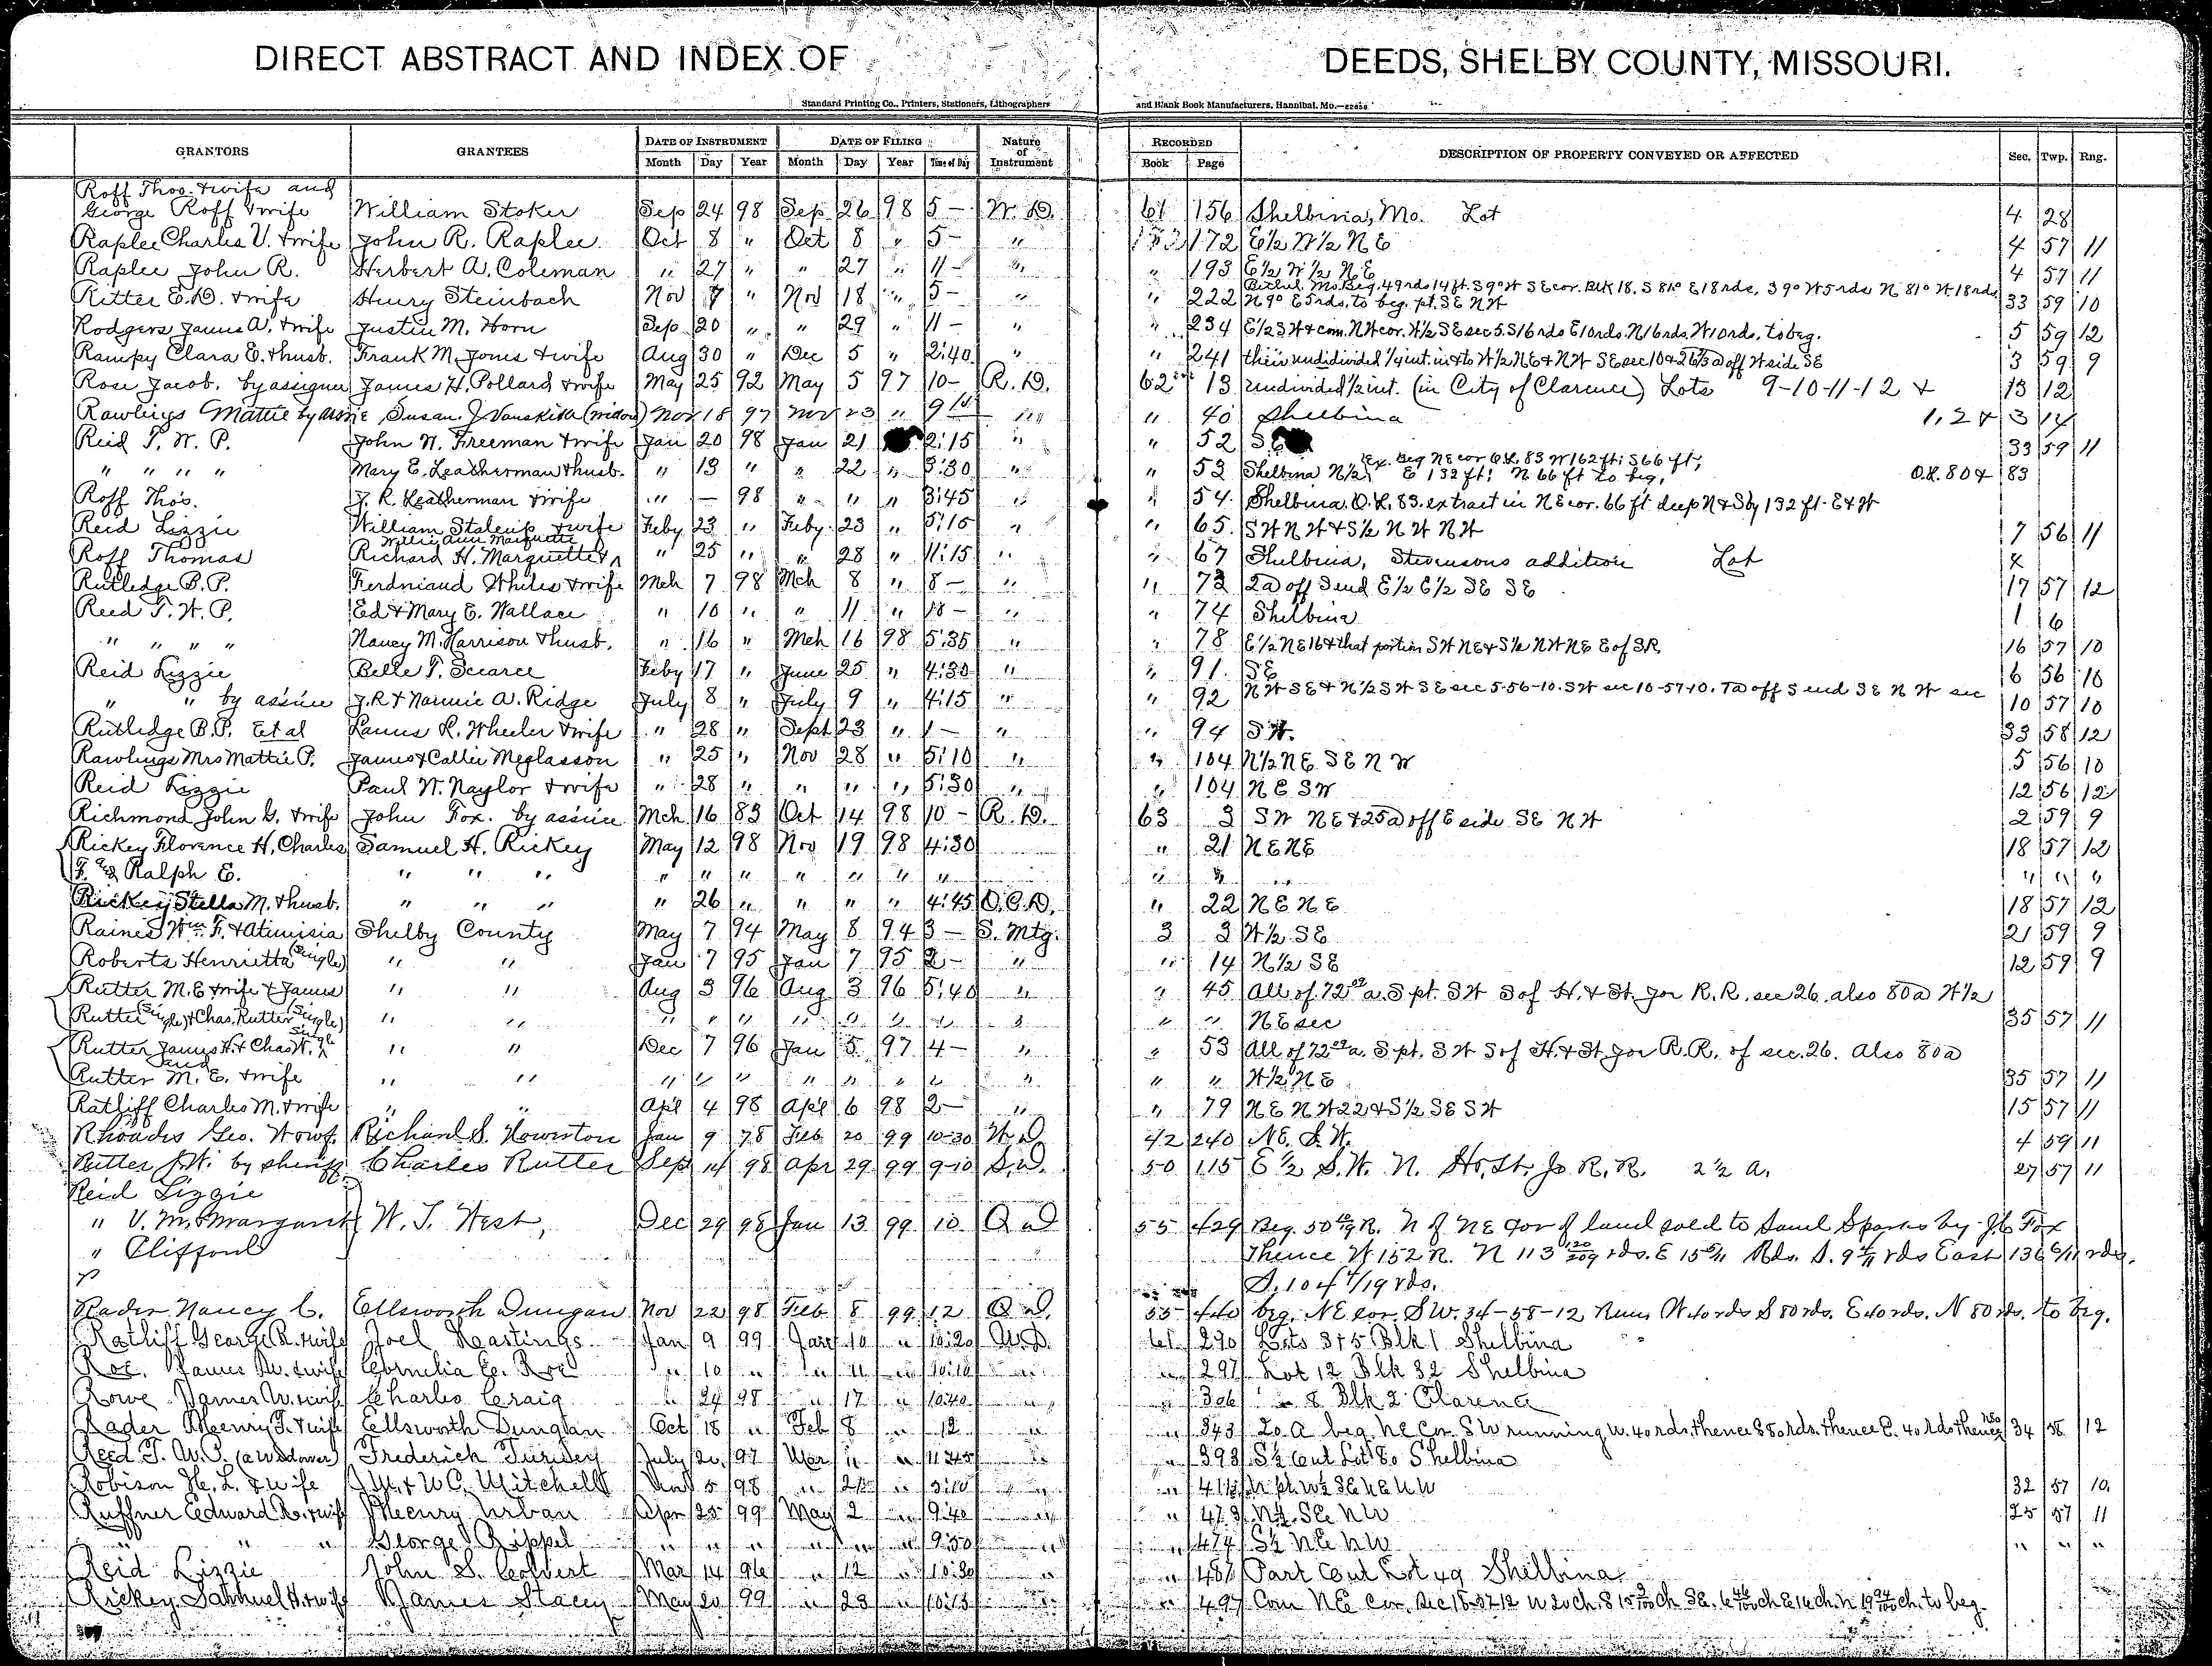 DIRECT ABSTRACT AND INDEX OF DEEDS, SHELBY COUNTY, MISSOURI.
Standard Printing Co., Printers, Stationers, Lithographers and Blank Book Manufacturers, Hannibal, Mo.
GRANTORS GRANTEES DATE OF INSTRUMENT DATE OF FILING Nature of Instrument RECORDED DESCRIPTION OF PROPERTY CONVEYED OR AFFECTED Sec. Twp. Rng.
Month Day Year Month Day Year Time of Day Book Page
Roff Thos. & wife and
George Roff & wife William Stoker Sep 24 98 Sep 26 98 5 - W. D. 61 156 Shelbina, Mo. Lot 4 28
Raplee Charles V. & wife John R. Raplee Oct 8 " Oct 8 " 5 - " 172 E½ W½ N E 4 57 11
Raplee John R. Herbert A. Coleman " 27 " " 27 " 11 - " " 193 E½ W½ N E 4 57 11
Bethel Mo. Beg. 49rds 14ft. S 9° W S E cor. Blk 18. S 81° E 18rds, S 9° W 5rds N 81° W. 18rds
Ritter E. D. & wife Henry Steinbach Nov 7 " Nov 18 " 5 - " " 222 N 9° E 5rds. to beg. pt. S E N W 33 59 10
Rodgers James A. & wife Justin M. Horn Sep 20 " " 29 " 11 - " " 234 E½ S W & com. N W cor. W½ S E sec 5. S 16rds E 10rds. N 16rds. W 10rds. to beg. 5 59 12
Rampy Clara E. & husb. Frank M. Jones & wife Aug 30 " Dec 5 " 2:40 " " 241 their undivided ¼ int. in & to W½ N E & N W S E sec 10 & 26⅔ a off W side S E 3 59 9
Rose Jacob. by assignee James H. Pollard & wife May 25 92 May 5 97 10 - R. D. 62 13 undivided ½ int. (in City of Clarence) Lots 9-10-11-12 & 13 12
Rawlings Mattie by assne Susan J. Vanskike (widow) Nov 18 97 Nov 23 " 9 " " 40 Shelbina 1, 2 & 3 14
Reid T. W. P. John W. Freeman & wife Jan 20 98 Jan 21 2:15 " " 52 S E 33 59 11
Ex. Beg N E cor O.L. 83 W 162 ft; S 66 ft;
" " " " Mary E. Leatherman & husb. " 13 " " 22 " 3:30 " " 53 Shelbina N½ E 132 ft; N 66 ft to beg. O.L. 80 & 83
Roff Thos. J. R. Leatherman & wife " - 98 " " " 3:45 " " 54 Shelbina O. L. 83. extract in N E cor. 66 ft. deep N & S by 132 ft. E & W
Reid Lizzie William Stalcup & wife Feby 23 " Feby 23 " 5:15 " " 65 S W N W & S½ N W N W 7 56 11
Willie Ann Marquette
Roff Thomas Richard H. Marquette & " 25 " " 28 " 11:15 " " 67 Shelbina, Stevensons addition Lot X
Rutledge B. P. Ferdniand Whiles & wife Mch 7 98 Mch 8 " 8 - " " 72 2a off S end E½ E½ S E S E 17 57 12
Reed T. W. P. Ed & Mary E. Wallace " 10 " " 11 " 18 - " " 74 Shelbina 1 6
" " " " Nancy M. Harrison & husb. " 16 " Mch 16 98 5:35 " " 78 E½ N E 16 & that portion S W N E & S½ N W N E E of S R. 16 57 10
Reid Lizzie Belle T. Scearce Feby 17 " June 25 " 4:30 " " 91 S E 6 56 10
" " by assinee J. R & Nannie A. Ridge July 8 " July 9 " 4:15 " " 92 N W S E & N½ S W S E sec 5-56-10. S W sec 10-57-10. 7a off S end S E N W sec 10 57 10
Rutledge B. P. Et al Lanus L. Wheeler & wife " 28 " Sept 23 " 1 - " " 94 S W. 33 58 12
Rawlings Mrs Mattie P. James & Callie Meglasson " 25 " Nov 28 " 5:10 " " 104 N½ N E S E N W 5 56 10
Reid Lizzie Paul W. Naylor & wife " 28 " " " " 5:30 " " 104 N E S W 12 56 12
Richmond John G. & wife John Fox. by assinee Mch 16 83 Oct 14 98 10 - R. D. 63 3 S W N E & 25a off E side S E N W 2 59 9
Rickey Florence H, Charles Samuel H. Rickey May 12 98 Nov 19 98 4:30 " 21 N E N E 18 57 12
F. & Ralph E. " " " " " " " " " " " " " " "
Rickey Stella M. & husb. " " " " 26 " " " " 4:45 Q. C. D. " 22 N E N E 18 57 12
Raines Wm. F. & Atimisia Shelby County May 7 94 May 8 94 3 - S. Mtg. 3 3 W½ S E 21 59 9
Roberts Henrietta (Single) " " Jan 7 95 Jan 7 95 2 - " " 14 N½ S E 12 59 9
Rutter M. E & wife & James " " Aug 3 96 Aug 3 96 5:40 " " 45 All of 72 a. S pt. S W S of H. & St. Joe R. R. sec 26. also 80a W½
Rutter (Single) & Chas. Rutter (Single) " " " " " " " " " " " " N E sec 35 57 11
Rutter James H. & Chas W. Single " " Dec 7 96 Jan 5 97 4 - " " 53 All of 72 a. S pt. S W S of H. & St. Joe R. R. of sec. 26. Also 80a
and
Rutter M. E. & wife " " " " " " " " " " " " W½ N E 35 57 11
Ratliff Charles M. & wife " " Apl 4 98 Apl 6 98 2 - " " 79 N E N W 22 & S½ S E S W 15 57 11
Rhoades Geo. W & wf. Richard S. Howerton Jan 9 78 Feb 20 99 10-30 W. D. 42 240 N E. S. W. 4 59 11
Rutter J. W. by sheriff Charles Rutter Sep 14 98 Apr 29 99 9-10 S. D. 50 115 E½ S. W. N. H. St. Jo R. R. 2½ a. 27 57 11
Reid Lizzie
" V. M. & Margaret W. T. West, Dec 29 98 Jan 13 99 10 Q D 55 429 Beg. 50 R. N of N E cor of land sold to Saml Sparks by J. C Fox
" Clifford Thence W 152 R. N 113 rds. E 15 Rds. S. 9 rds East 136 6/11 rds.
S. 104 4/19 rds.
Rader Nancy C. Ellsworth Dungan Nov 22 98 Feb 8 99 12 Q D. 55 440 beg. N E cor. S W. 34-58-12 Runs W 40 rds S 80 rds. E 40 rds. N 80 rds. to beg.
Ratliff George R. & wife Joel Hastings Jan 9 99 Jan 10 " 10:20 W. D. 61 290 Lots 3 & 5 Blk 1 Shelbina
Roe. James W. & wife Cornelia E. Roe " 10 " " 11 " 10:10 " " 297 Lot 12 Blk 32 Shelbina
Rowe James W. & wife Charles Craig " 24 98 " 17 " 10:40 " " 306 " 8 Blk 2 Clarence
Rader Henry T. & wife Ellsworth Dungan Oct 18 " Feb 8 " 12 " " 343 20 A beg. N E Cor. S W running W. 40 rds. thence S 80 rds. thence E. 40 rds thence N 80 34 58 12
Reed T. W. P. (a Widower) Frederick Turner July 20 97 Mar 11 " 11:45 " " 393 S½ Out Lot 80 Shelbina
Robison H. L. & wife J. M. & W. C. Mitchell 5 98 " " 3:10 " " N pt. W½ S E N E N W 32 57 10.
Ruffner Edward R. & wife Henry Urban Apr 25 99 May 2 " 9:40 " " 473 N½ S E N W 25 57 11
" " " George Rippel " " " " " " 9:50 " " 474 S½ N E N W " " "
Reid Lizzie John S. Colvert Mar 14 96 " 12 " 10:30 " " 486 Part Out Lot 49 Shelbina
Rickey Samuel H. & wife James Stacy May 20 99 " 23 " 10:15 " " 497 Com N E Cor. Sec 18-57-12 W 20 ch. S 15 ch. S E. 6 ch E 16 ch. N 19 ch. to beg.